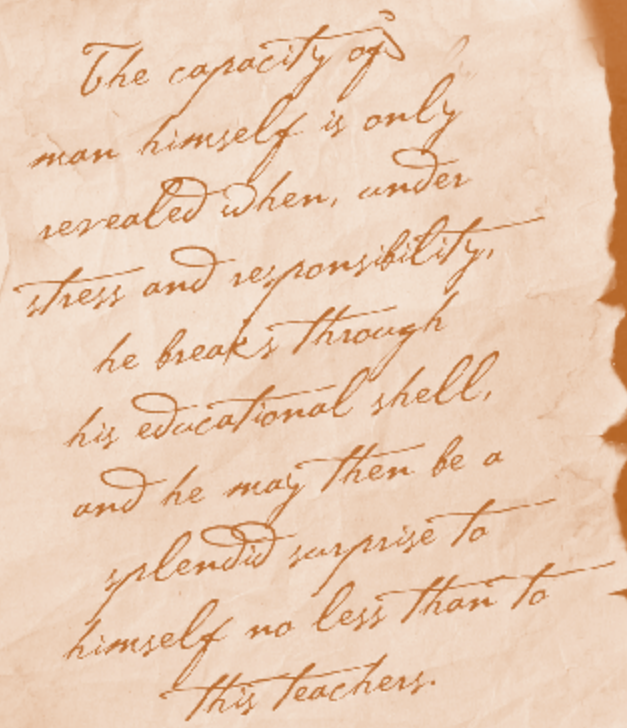 The capacity of
man himself is only
revealed when, under
stress and responsibility,
he breaks through
his educational shell,
and he may then be a
splendid surprise to
himself no less than to
this teachers.